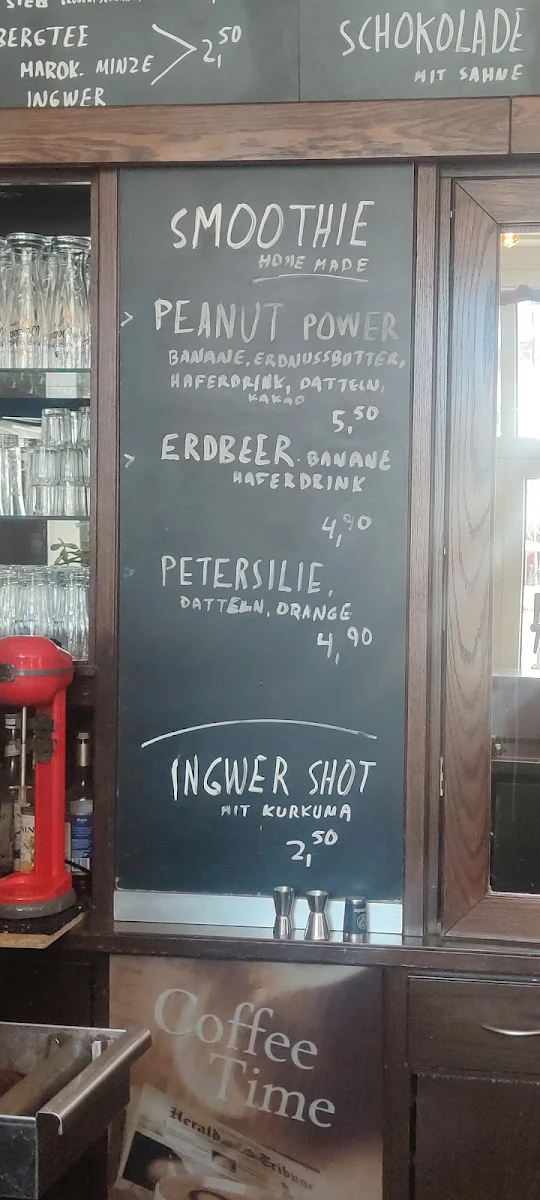 BERGTEE
MAROK. MINZE
INGWER
2,50
SCHOKOLADE
MIT SAHNE
SMOOTHIE
HOME MADE
> PEANUT POWER
BANANE, ERDNUSSBUTTER,
HAFERDRINK, DATTELN,
KAKAO
5,50
> ERDBEER-BANANE
HAFERDRINK
4,90
PETERSILIE,
DATTELN, ORANGE
4,90
INGWER SHOT
MIT KURKUMA
2,50
Coffee
Time
Herald Tribune